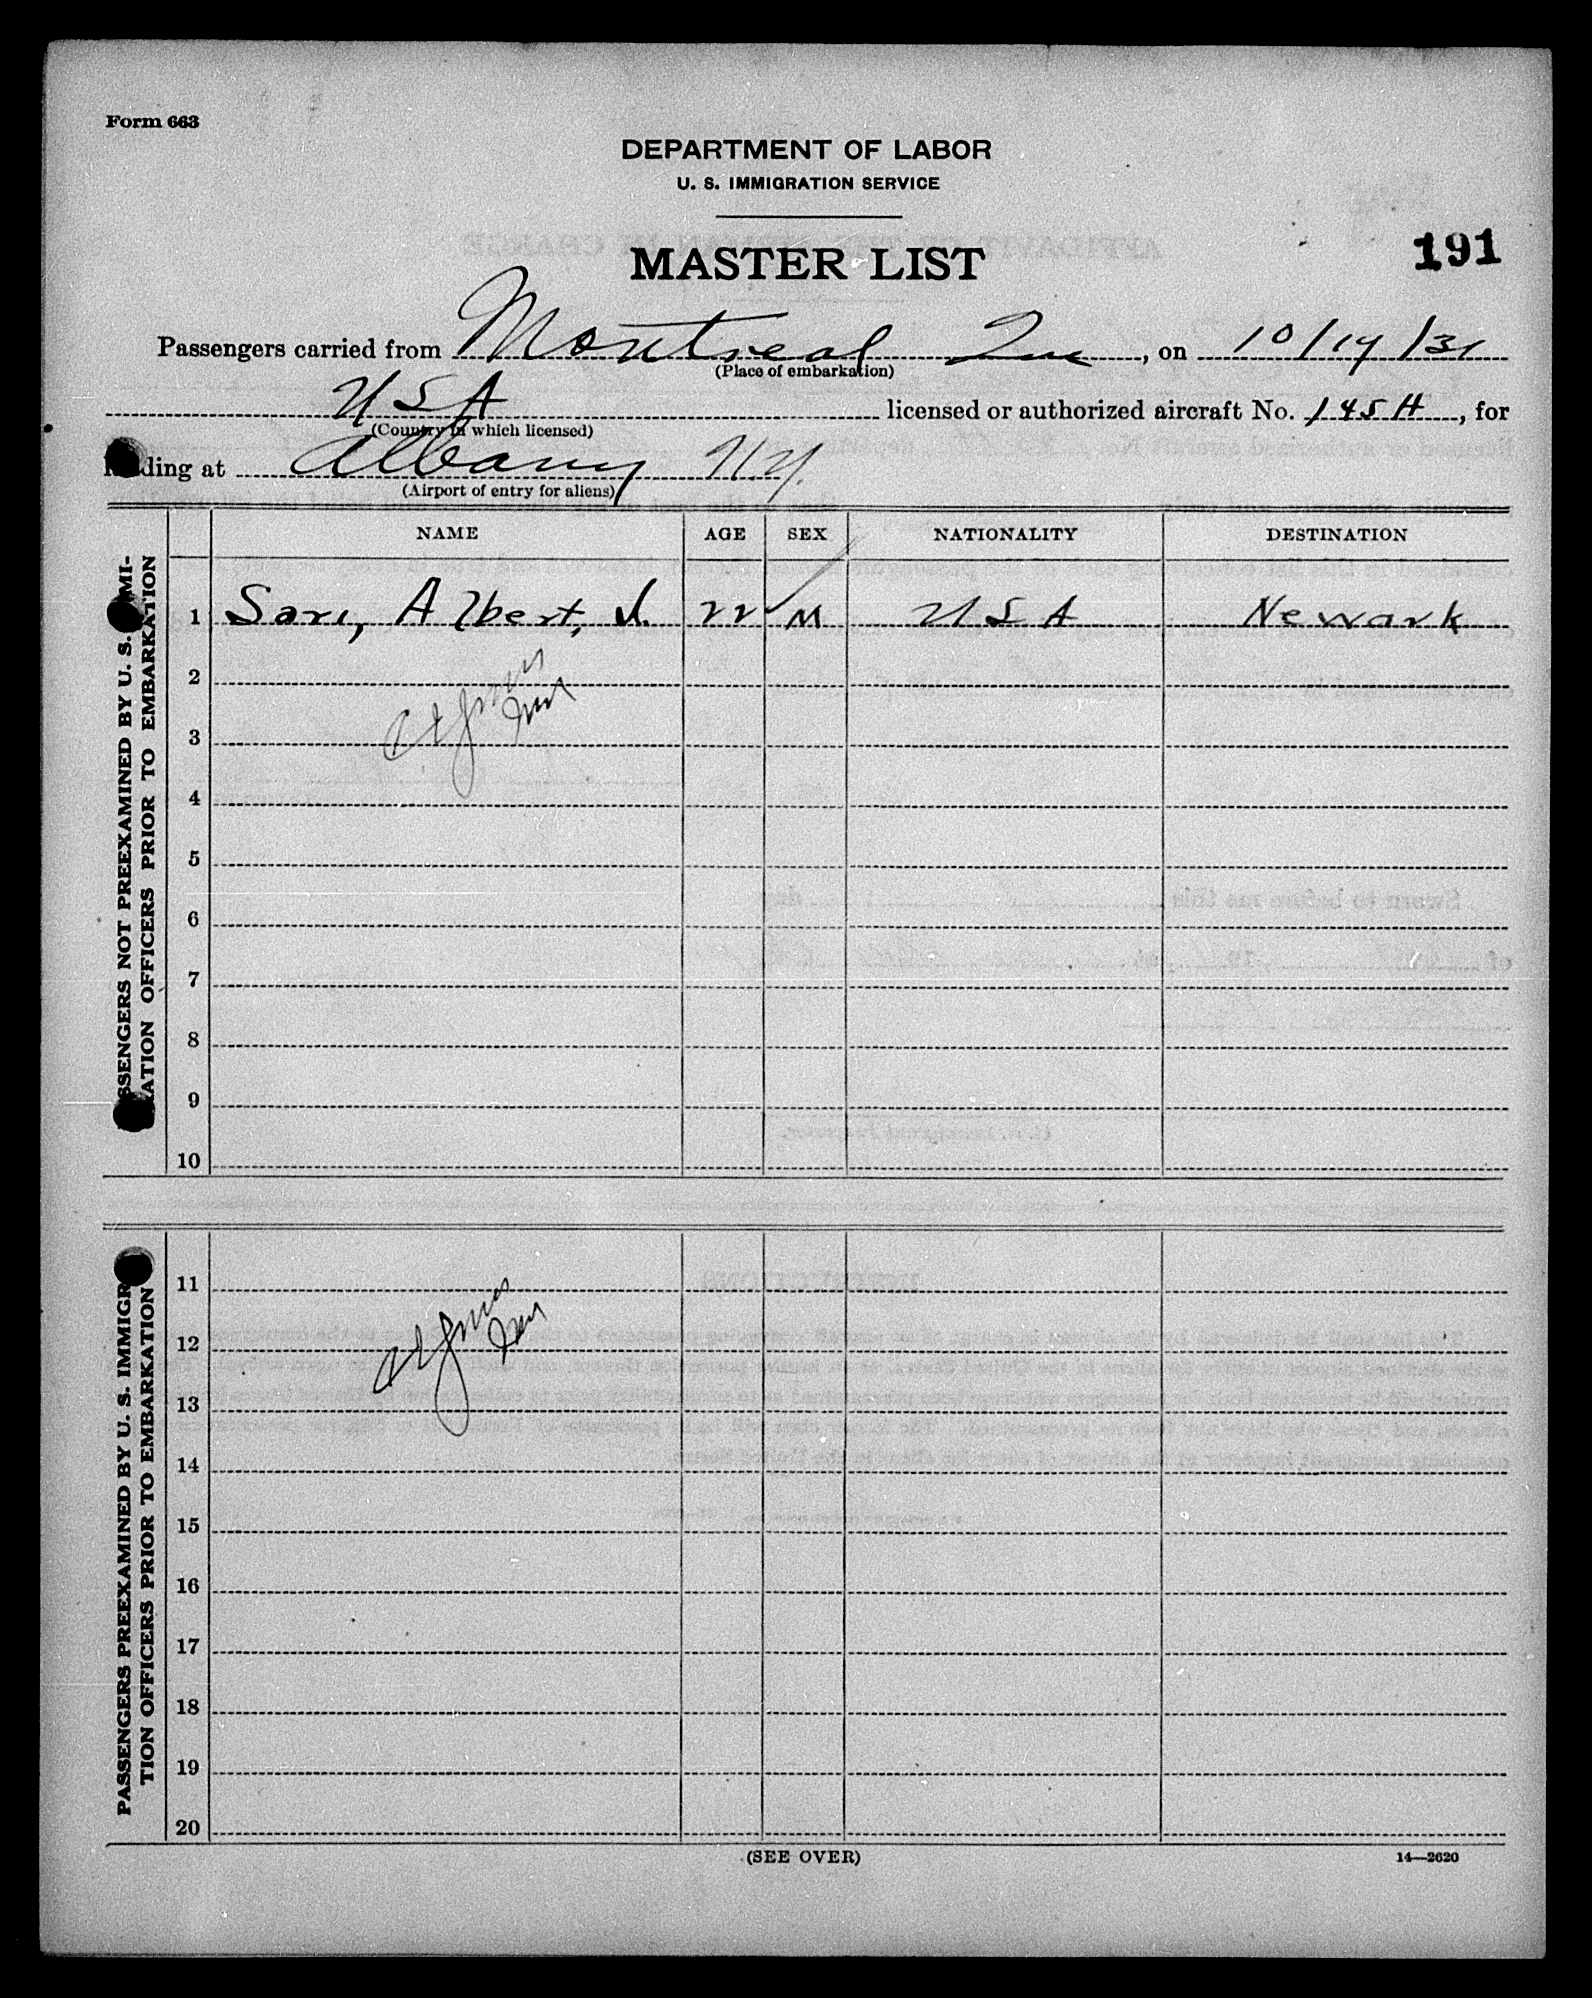 Form 663
DEPARTMENT OF LABOR
U. S. IMMIGRATION SERVICE
MASTER LIST
191
Passengers carried from Montreal Que, on 10/14/31
(Place of embarkation)
USA licensed or authorized aircraft No. 145H, for
(Country in which licensed)
landing at Albany N.Y.
(Airport of entry for aliens)
NAME AGE SEX NATIONALITY DESTINATION
PASSENGERS NOT PREEXAMINED BY U. S. IMMI-
GRATION OFFICERS PRIOR TO EMBARKATION
1 Albert, J. 22 M USA Newark
2
3
4
5
6
7
8
9
10
PASSENGERS PREEXAMINED BY U. S. IMMIGRA-
TION OFFICERS PRIOR TO EMBARKATION
11
12
13
14
15
16
17
18
19
20
(SEE OVER)
14—2620